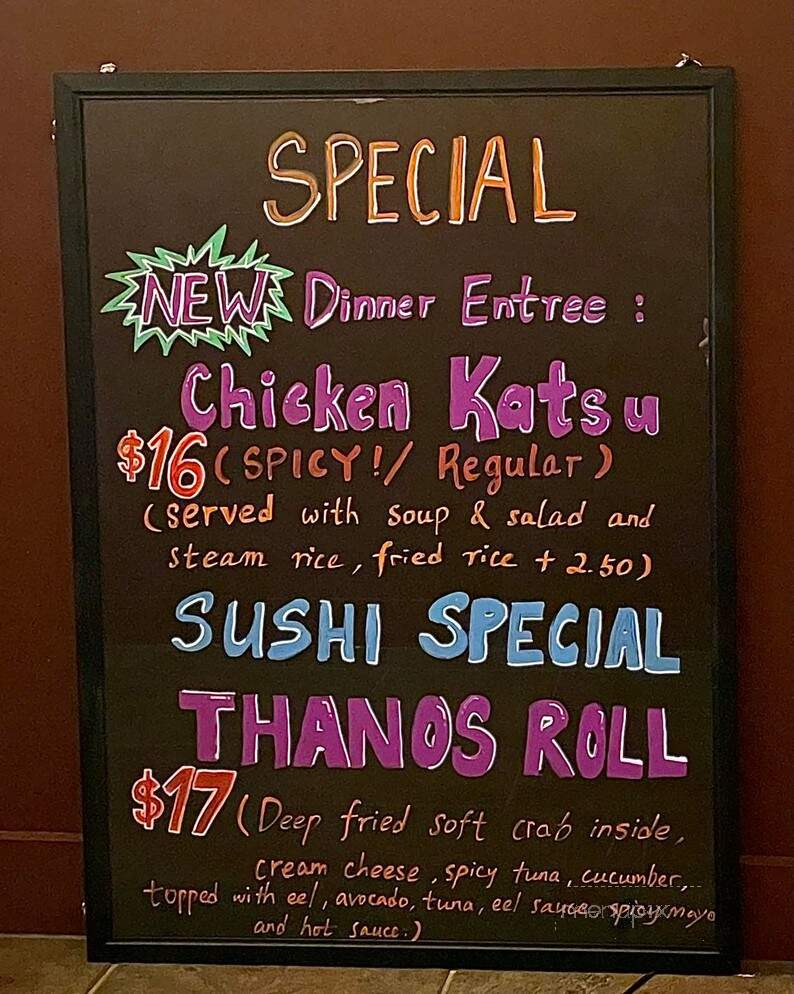 SPECIAL
NEW Dinner Entree :
Chicken Katsu
$16 (SPICY!/ Regular)
(served with soup & salad and
steam rice, fried rice + 2.50)
SUSHI SPECIAL
THANOS ROLL
$17 (Deep fried soft crab inside,
cream cheese, spicy tuna, cucumber,
topped with eel, avocado, tuna, eel sauce, spicy mayo
and hot sauce.)
menupix